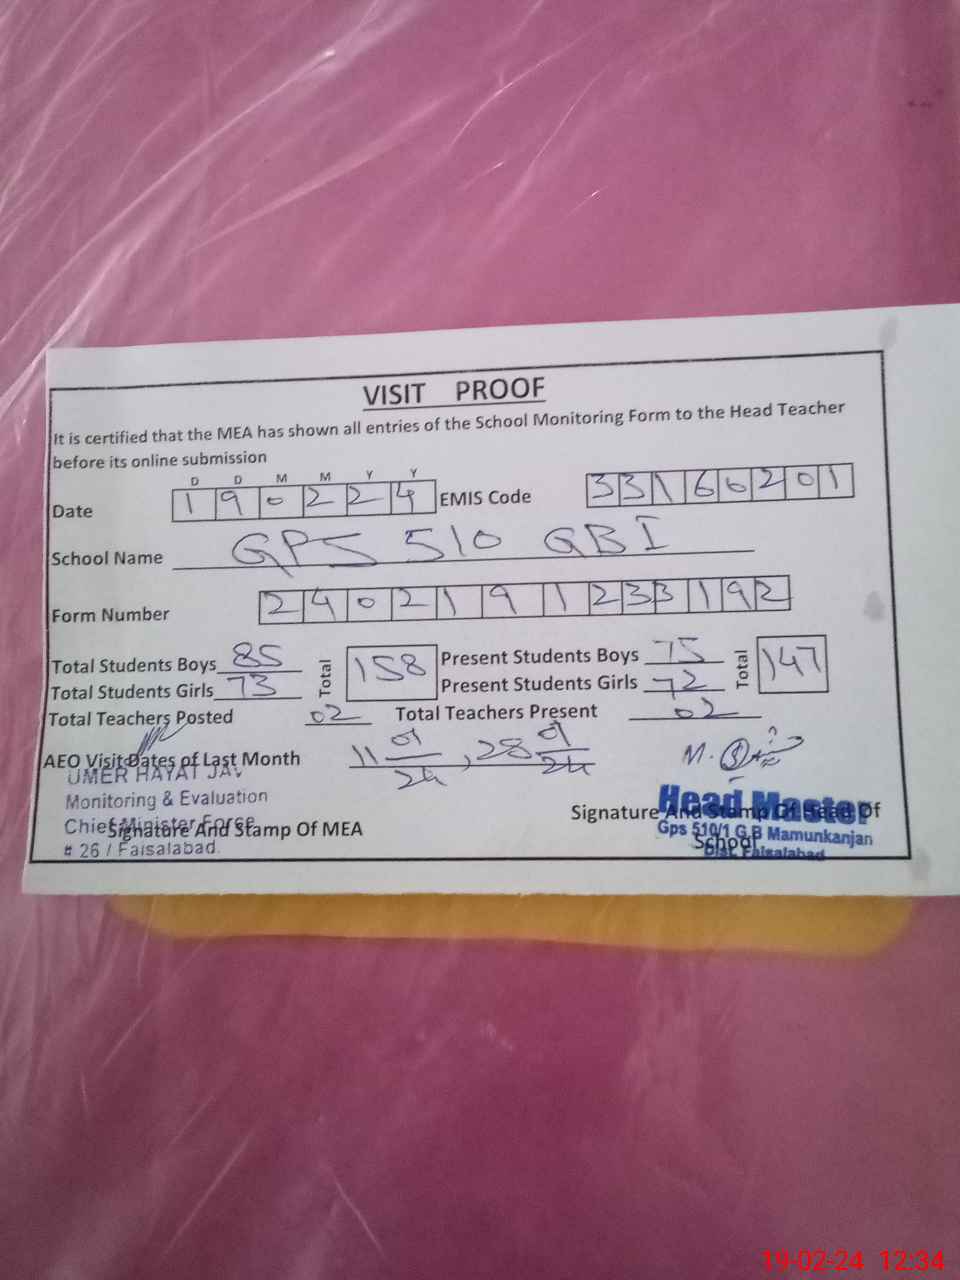 VISIT PROOF
It is certified that the MEA has shown all entries of the School Monitoring Form to the Head Teacher
before its online submission
D D M M Y Y
Date 190224 EMIS Code 33160201
School Name GPS 510 GBI
Form Number 240219123 3192
Total Students Boys 85 Total 158 Present Students Boys 75 Total 147
Total Students Girls 73 Present Students Girls 72
Total Teachers Posted 02 Total Teachers Present 02
AEO Visit Dates of Last Month 11 01/24, 28 01/24
UMER HAYAT
Monitoring & Evaluation
Chief Minister Force
# 26 / Faisalabad.
Signature And Stamp Of MEA
Signature And Stamp Of Head Of
School
Head Master
Gps 510/1 G.B Mamunkanjan
Dist. Faisalabad
19-02-24 12:34